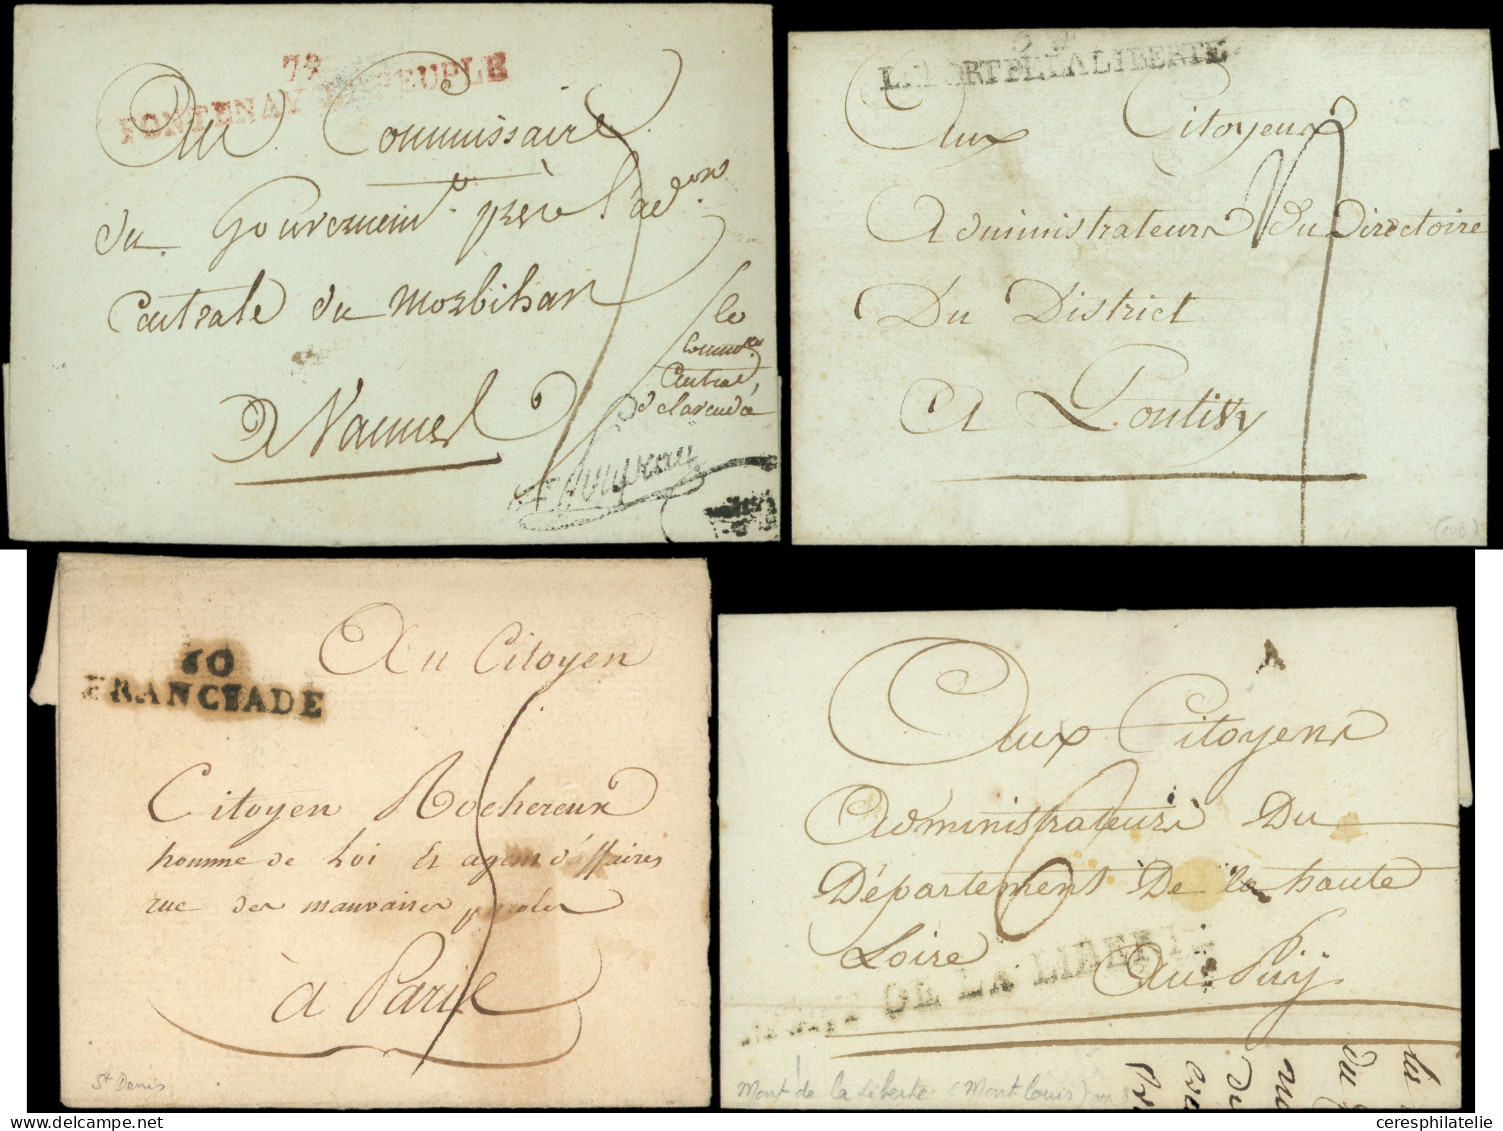 79
FONTENAY LE PEUPLE
Au Commissaire
du Gouvernemt. près l'adon.
Centrale du Morbihan
A Vannes
le
Central
LE PORT DE LA LIBERTE
Aux Citoyens
Administrateurs du Directoire
Du District
A Pontivy
60
FRANCIADE
Au Citoyen
Citoyen Rochereux
homme de Loi Et agent d'affaires
rue des mauvaises paroles
à Paris
St Denis
Aux Citoyens
Administrateurs Du
Département De la haute
Loire
Au Puy
MONT DE LA LIBERTE
Mont de la liberté (Mont louis)
delcampe.net
ceresphilatelie